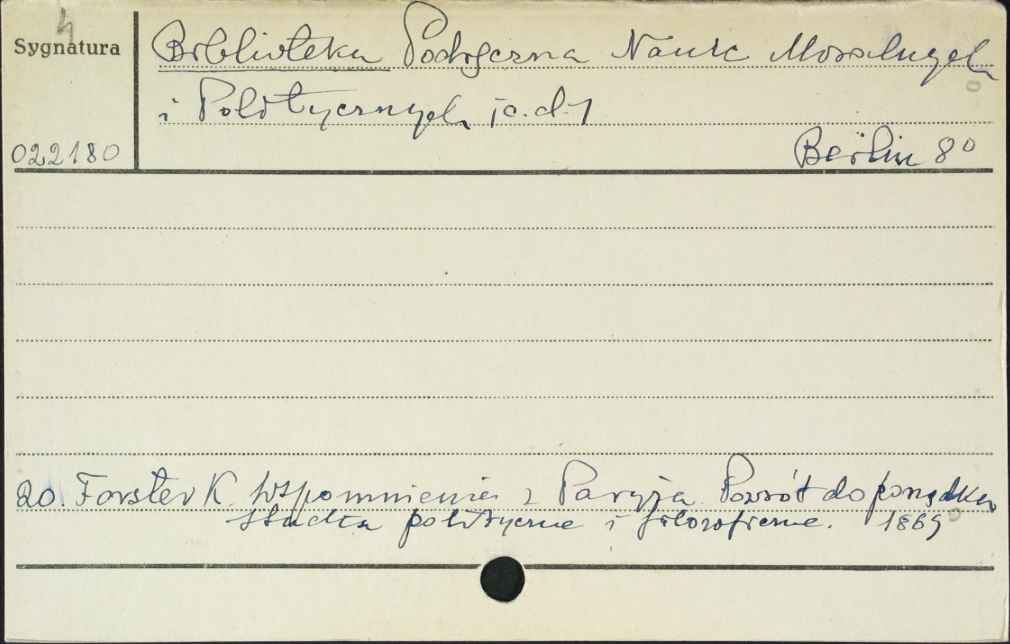 4
Sygnatura
Biblioteka Podręczna Nauk Moralnych
i Politycznych [c.d.]
022180
Berlin 8°
20. Forster K. Wspomnienia z Paryża. Powrót do porządku
studia polityczne i filozoficzne. 1869